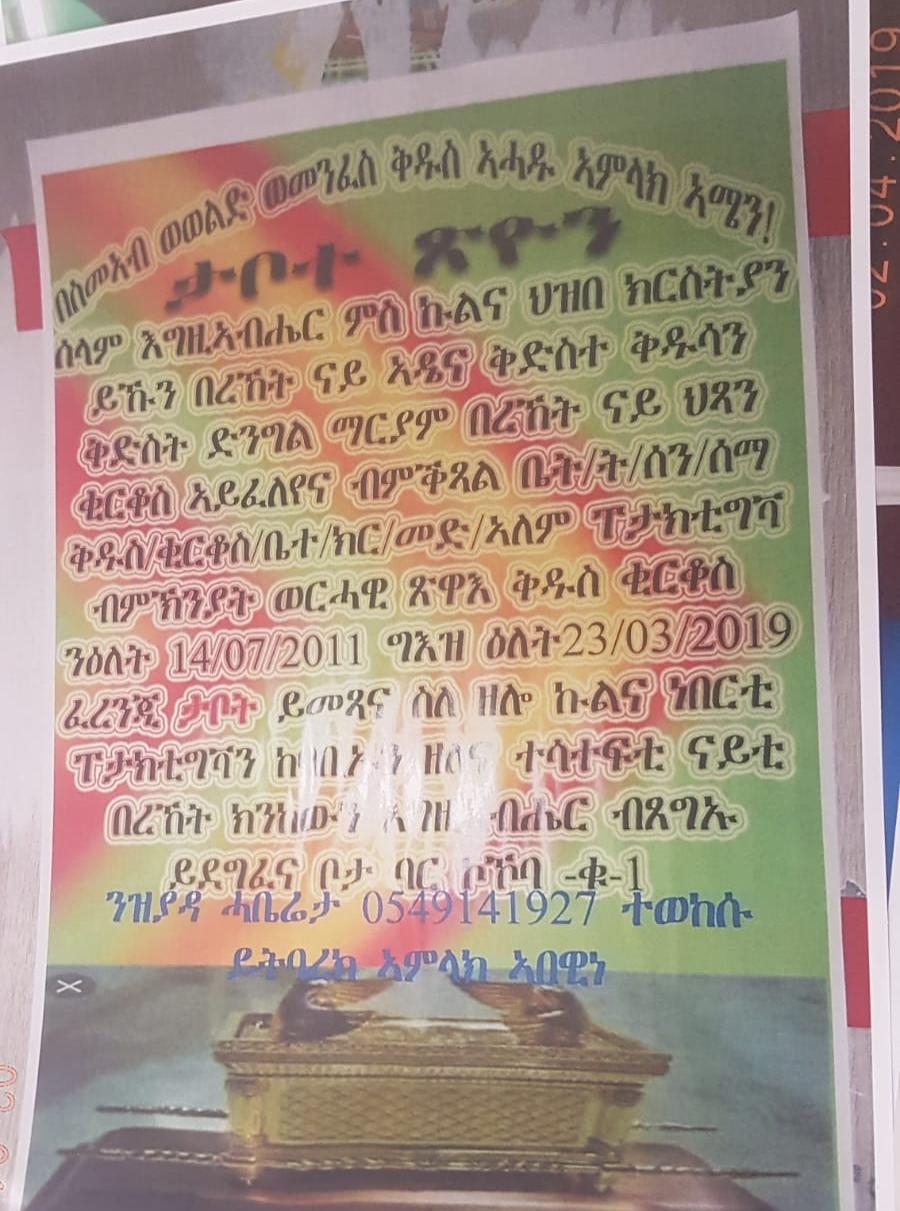 በስመአብ ወወልድ ወመንፈስ ቅዱስ ኣሓዱ ኣምላክ ኣሜን!
ታቦተ ጽዮን
ሰላም እግዚኣብሔር ምስ ኩልና ህዝበ ክርስትያን
ይኹን በረኸት ናይ ኣዴና ቅድስተ ቅዱሳን
ቅድስት ድንግል ማርያም በረኸት ናይ ህጻን
ቂርቆስ ኣይፈለየና ብምቕጻል ቤት/ት/ሰን/ሰማ
ቅዱስ/ቂርቆስ/ቤተ/ክር/መድ/ኣለም ፐታክቲግቫ
ብምኽንያት ወርሓዊ ጽዋእ ቅዱስ ቂርቆስ
ንዕለት 14/07/2011 ግእዝ ዕለት23/03/2019
ፈረንጂ ታቦት ይመጻና ስለ ዘሎ ኩልና ነበርቲ
ፐታክቲግቫን ተሳተፍቲ ናይቲ
በረኸት ክንከውን ብጸግኡ
ይደግፈና ቦታ ባር -ቁ-1
ንዝያዳ ሓበሬታ 0549141927 ተወከሱ
ይትባረክ ኣምላክ ኣበዊነ
02.04.2019